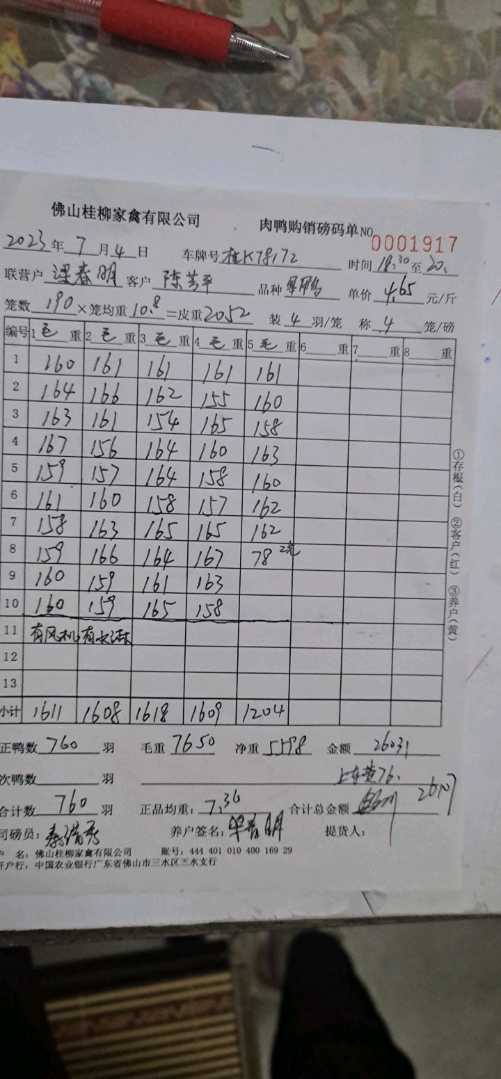 佛山桂柳家禽有限公司 肉鸭购销磅码单 NO 0001917
2023年7月4日 车牌号 桂K78172 时间 18:30至20:
联营户 梁春明 客户 陈 平 品种 单价 4.65 元/斤
笼数 190 ×笼均重 10.8 =皮重 2052 装 4 羽/笼 称 4 笼/磅
编号 1 毛 重 2 毛 重 3 毛 重 4 毛 重 5 毛 重 6 重 7 重 8 重
1 160 161 161 161 161
2 164 166 162 155 160
3 163 161 154 165 158
4 167 156 164 160 163
5 159 157 164 158 160
6 161 160 158 157 162
7 158 163 165 165 162
8 159 166 164 167 78 2笼
9 160 159 161 163
10 160 159 165 158
11 有风机有水
12
13
小计 1611 1608 1618 1609 1204
正鸭数 760 羽 毛重 7650 净重 5598 金额 26031
次鸭数 羽 76.
合计数 760 羽 正品均重: 7.36 合计总金额 26107
司磅员: 养户签名: 梁春明 提货人:
户 名: 佛山桂柳家禽有限公司 账号: 444 401 010 400 169 29
开户行: 中国农业银行广东省佛山市三水区三水支行
①存根(白) ②客户(红) ③养户(黄)